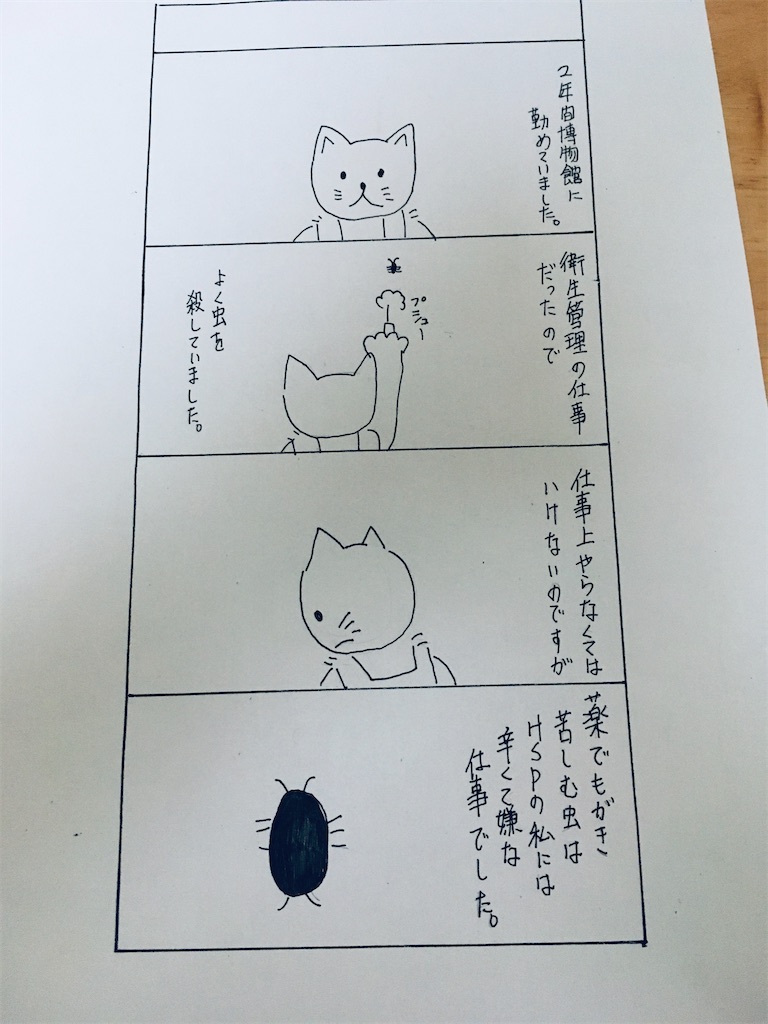 2年間博物館に
勤めていました。
衛生管理の仕事
だったので
プシュー
よく虫を
殺していました。
仕事上やらなくては
いけないのですが
薬でもがき
苦しむ虫は
HSPの私には
辛くて嫌な
仕事でした。